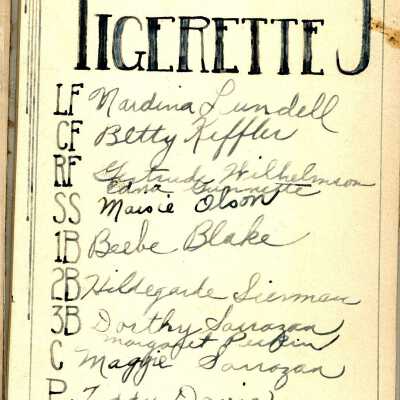 TIGERETTES
LF Nardina Lundell
CF Betty Kiffler
RF Gertrude Wilhelmson
Edna Guinnette
SS Maisie Olson
1B Beebe Blake
2B Hildegarde Sierman
3B Dorthy Sarrazan
Margaret Perpin
C Maggie Sarrazan
P. Davis